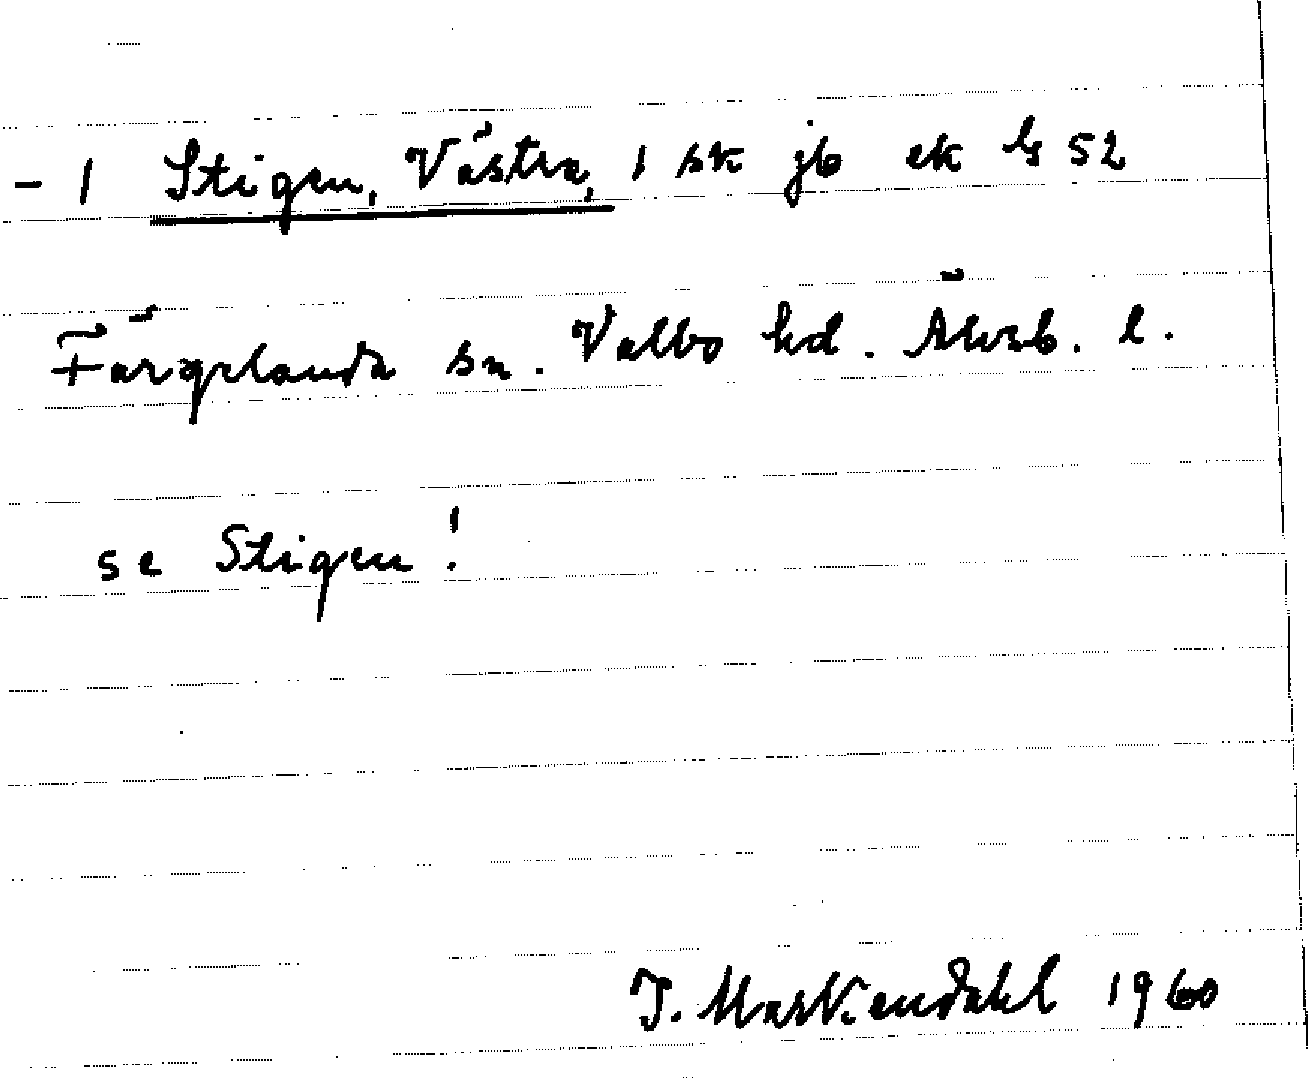 - 1 Stigen, Västra, 1 sk jb ek ls 52
Färgelanda sn. Valbo hd. Älvsb. l.
se Stigen!
J. Markendahl 1960